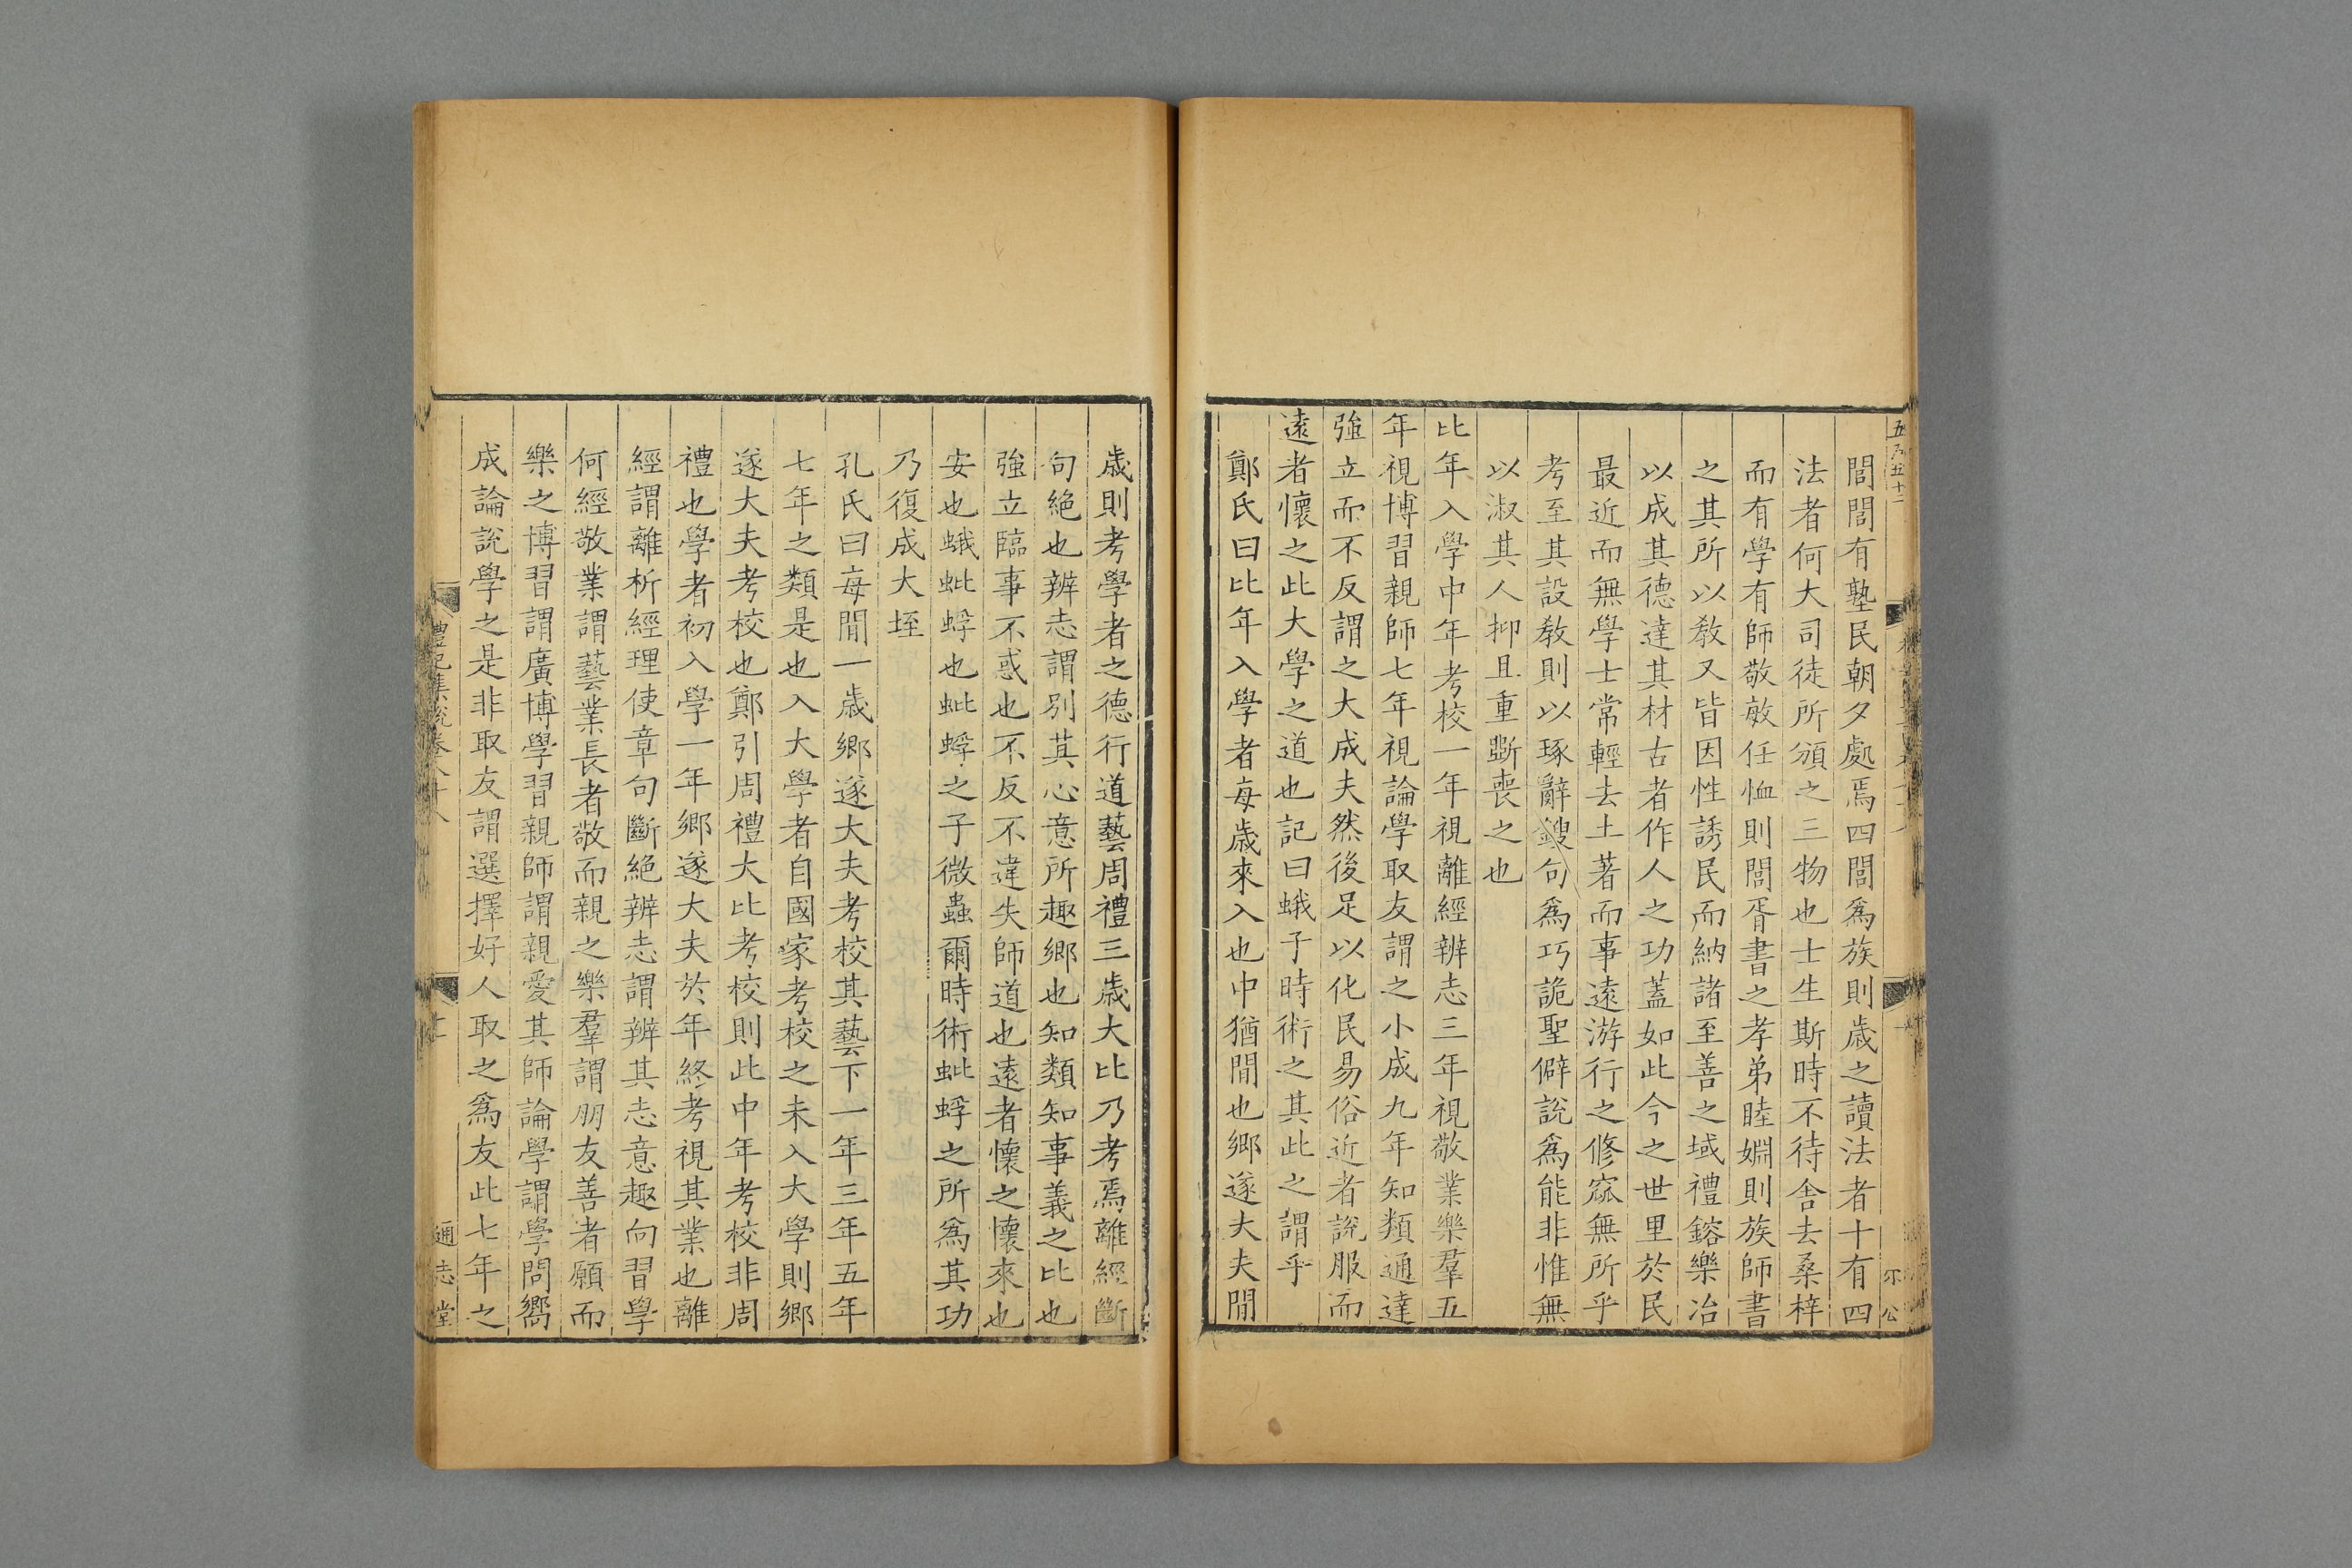 閭閻有塾民朝夕處焉四閭爲族則歲之讀法者十有四
法者何大司徒所頒之三物也士生斯時不待舍去桑梓
而有學有師敬敏任恤則閭胥書之孝弟睦婣則族師書
之其所以敎又皆因性誘民而納諸至善之域禮鎔樂冶
以成其德達其材古者作人之功蓋如此今之世里於民
最近而無學士常輕去土著而事遠游行之修窳無所乎
考至其設敎則以琢辭鎪句爲巧詭聖僻說爲能非惟無
以淑其人抑且重斲喪之也
比年入學中年考校一年視離經辨志三年視敬業樂羣五
年視博習親師七年視論學取友謂之小成九年知類通達
強立而不反謂之大成夫然後足以化民易俗近者說服而
遠者懷之此大學之道也記曰蛾子時術之其此之謂乎
鄭氏曰比年入學者每歲來入也中猶閒也鄉遂大夫閒
歲則考學者之德行道藝周禮三歲大比乃考焉離經斷
句絶也辨志謂別其心意所趣鄉也知類知事義之比也
強立臨事不惑也不反不違失師道也遠者懷之懷來也
安也蛾蚍蜉也蚍蜉之子微蟲爾時術蚍蜉之所爲其功
乃復成大垤
孔氏曰每閒一歲鄉遂大夫考校其藝下一年三年五年
七年之類是也入大學者自國家考校之未入大學則鄉
遂大夫考校也鄭引周禮大比考校則此中年考校非周
禮也學者初入學一年鄉遂大夫於年終考視其業也離
經謂離析經理使章句斷絶辨志謂辨其志意趣向習學
何經敬業謂藝業長者敬而親之樂羣謂朋友善者願而
樂之博習謂廣博學習親師謂親愛其師論學謂學問嚮
成論說學之是非取友謂選擇好人取之爲友此七年之
禮記集說卷八十八
通志堂